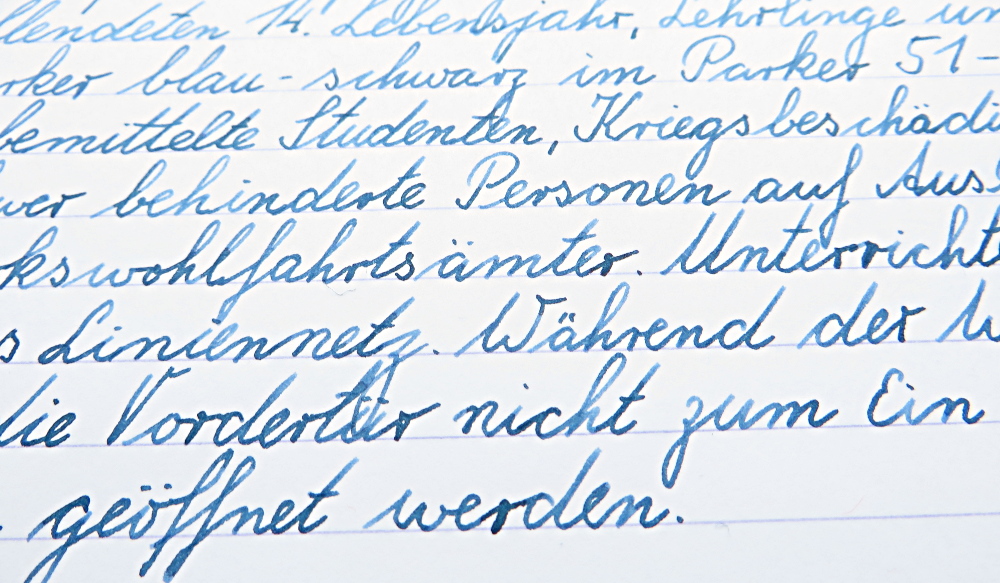 llendeten 14. Lebensjahr, Lehrlinge un
rker blau-schwarz im Parker 51-
bemittelte Studenten, Kriegsbeschädi
wer behinderte Personen auf Aus
kswohlfahrtsämter. Unterricht
s Liniennetz. Während der W
die Vordertür nicht zum Ein
geöffnet werden.